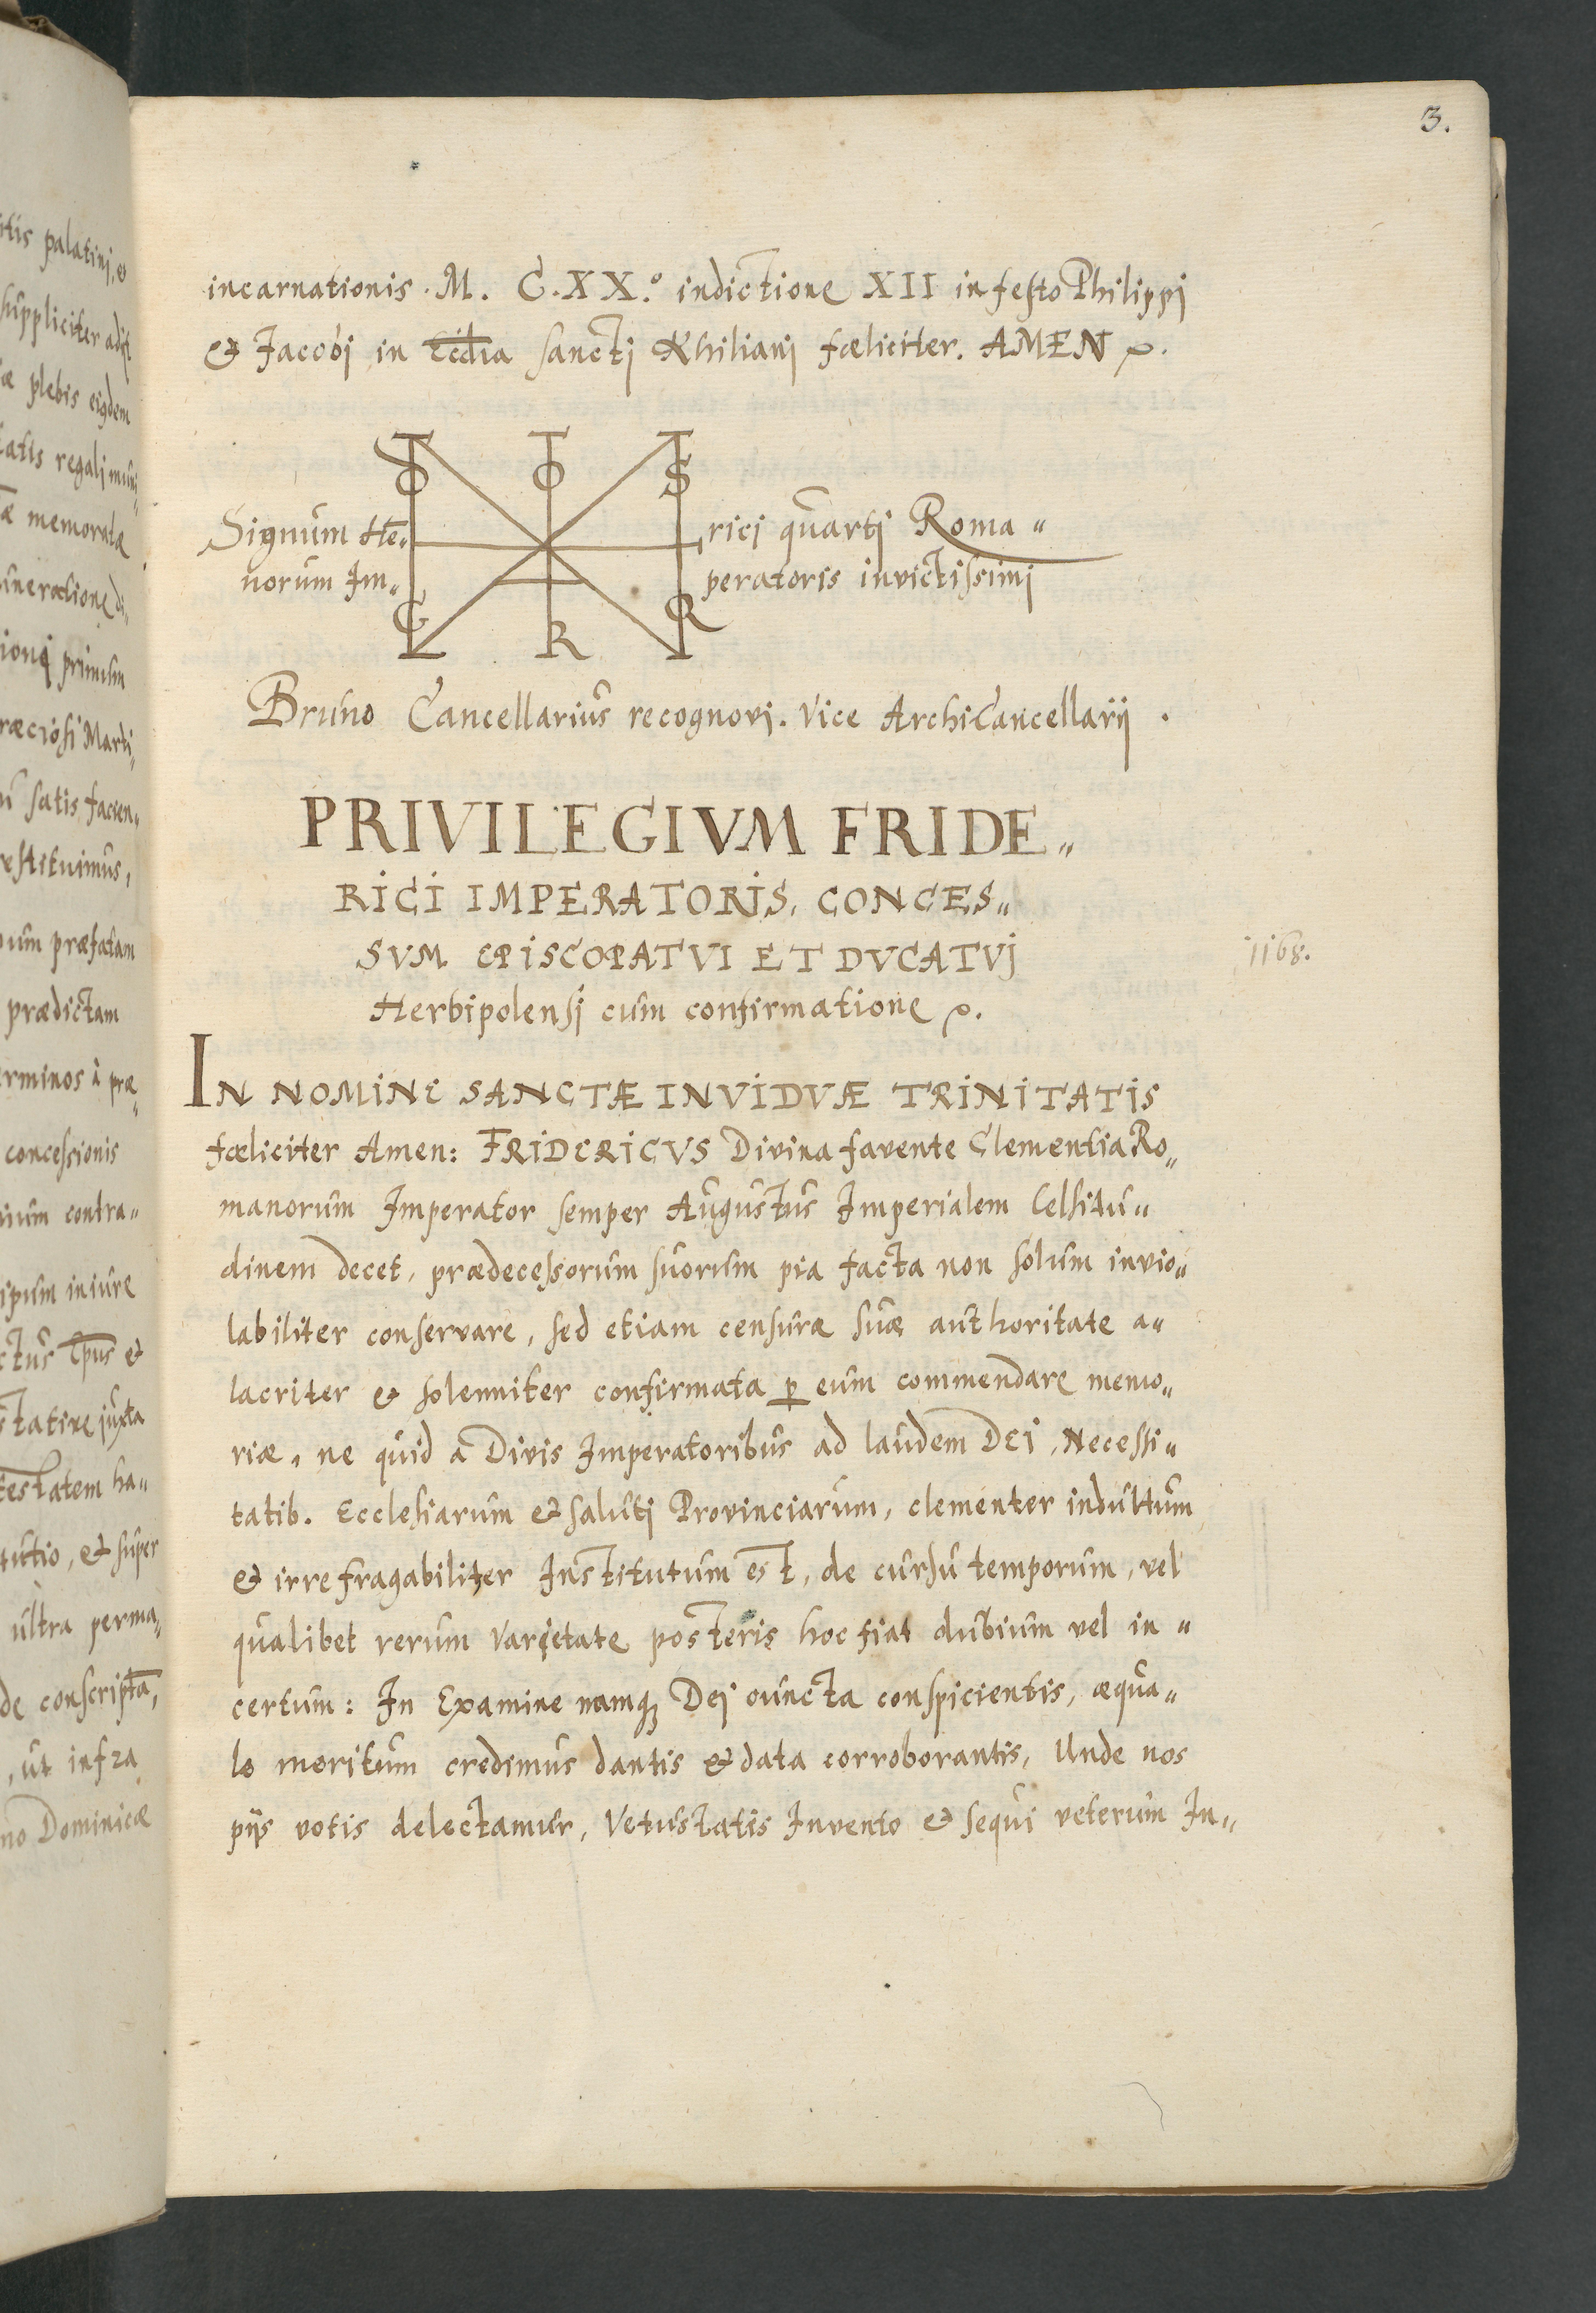 3.
incarnationis. M. C.XX.º indictione XII in festo Philippj
& Jacobj in Eccl̅ia sanctj Khilianj fœliciter. AMEN
T T T
O O S
Signum He„ rici quartj Roma„
norum Im„ peratoris invictissimj
C R R
Bruno Cancellarius recognovj. Vice ArchiCancellarij.
PRIVILEGIVM FRIDE„
RICI IMPERATORIS, CONCES„
SVM EPISCOPATVI ET DVCATVj
1168.
Herbipolensj cum confirmatione
IN NOMINE SANCTÆ INVIDVÆ TRINITATIS
fœliciter Amen: FRIDERICVS Divina favente Clementia Ro„
manorum Imperator semper Augustus Imperialem Celsitu„
dinem decet, prædecessorum suorum pia facta non solum invio„
labiliter conservare, sed etiam censuræ suæ authoritate a„
lacriter & solenniter confirmata ꝑ eum commendare memo„
riæ, ne quid a Divis Imperatoribus ad laudem DEI, Necessi„
tatib. Ecclesiarum & salutj Provinciarum, clementer indultum
& irrefragabiliter Institutum est, de cursu temporum, vel
qualibet rerum varietate posteris hoc fiat dubium vel in„
certum: In Examine namq; Dej cuncta conspicientis, æqua„
le meritum credimus dantis & data corroborantis, Unde nos
pijs votis delectamur, Vetustatis Invento & sequi veterum In„
itis palatinj, &
suppliciter
æ plebis eiqdem
tatis regalj
æ memoratæ
primum
Martj„
satis facien„
um præfatam
prædictam
erminos à præ„
concessionis
ium contra„
ipum in iure
ctus Ep̅us &
statire juxta
testatem ha„
tutio, & super
ultra perma„
de conscripta,
, ut infra
no Dominicæ